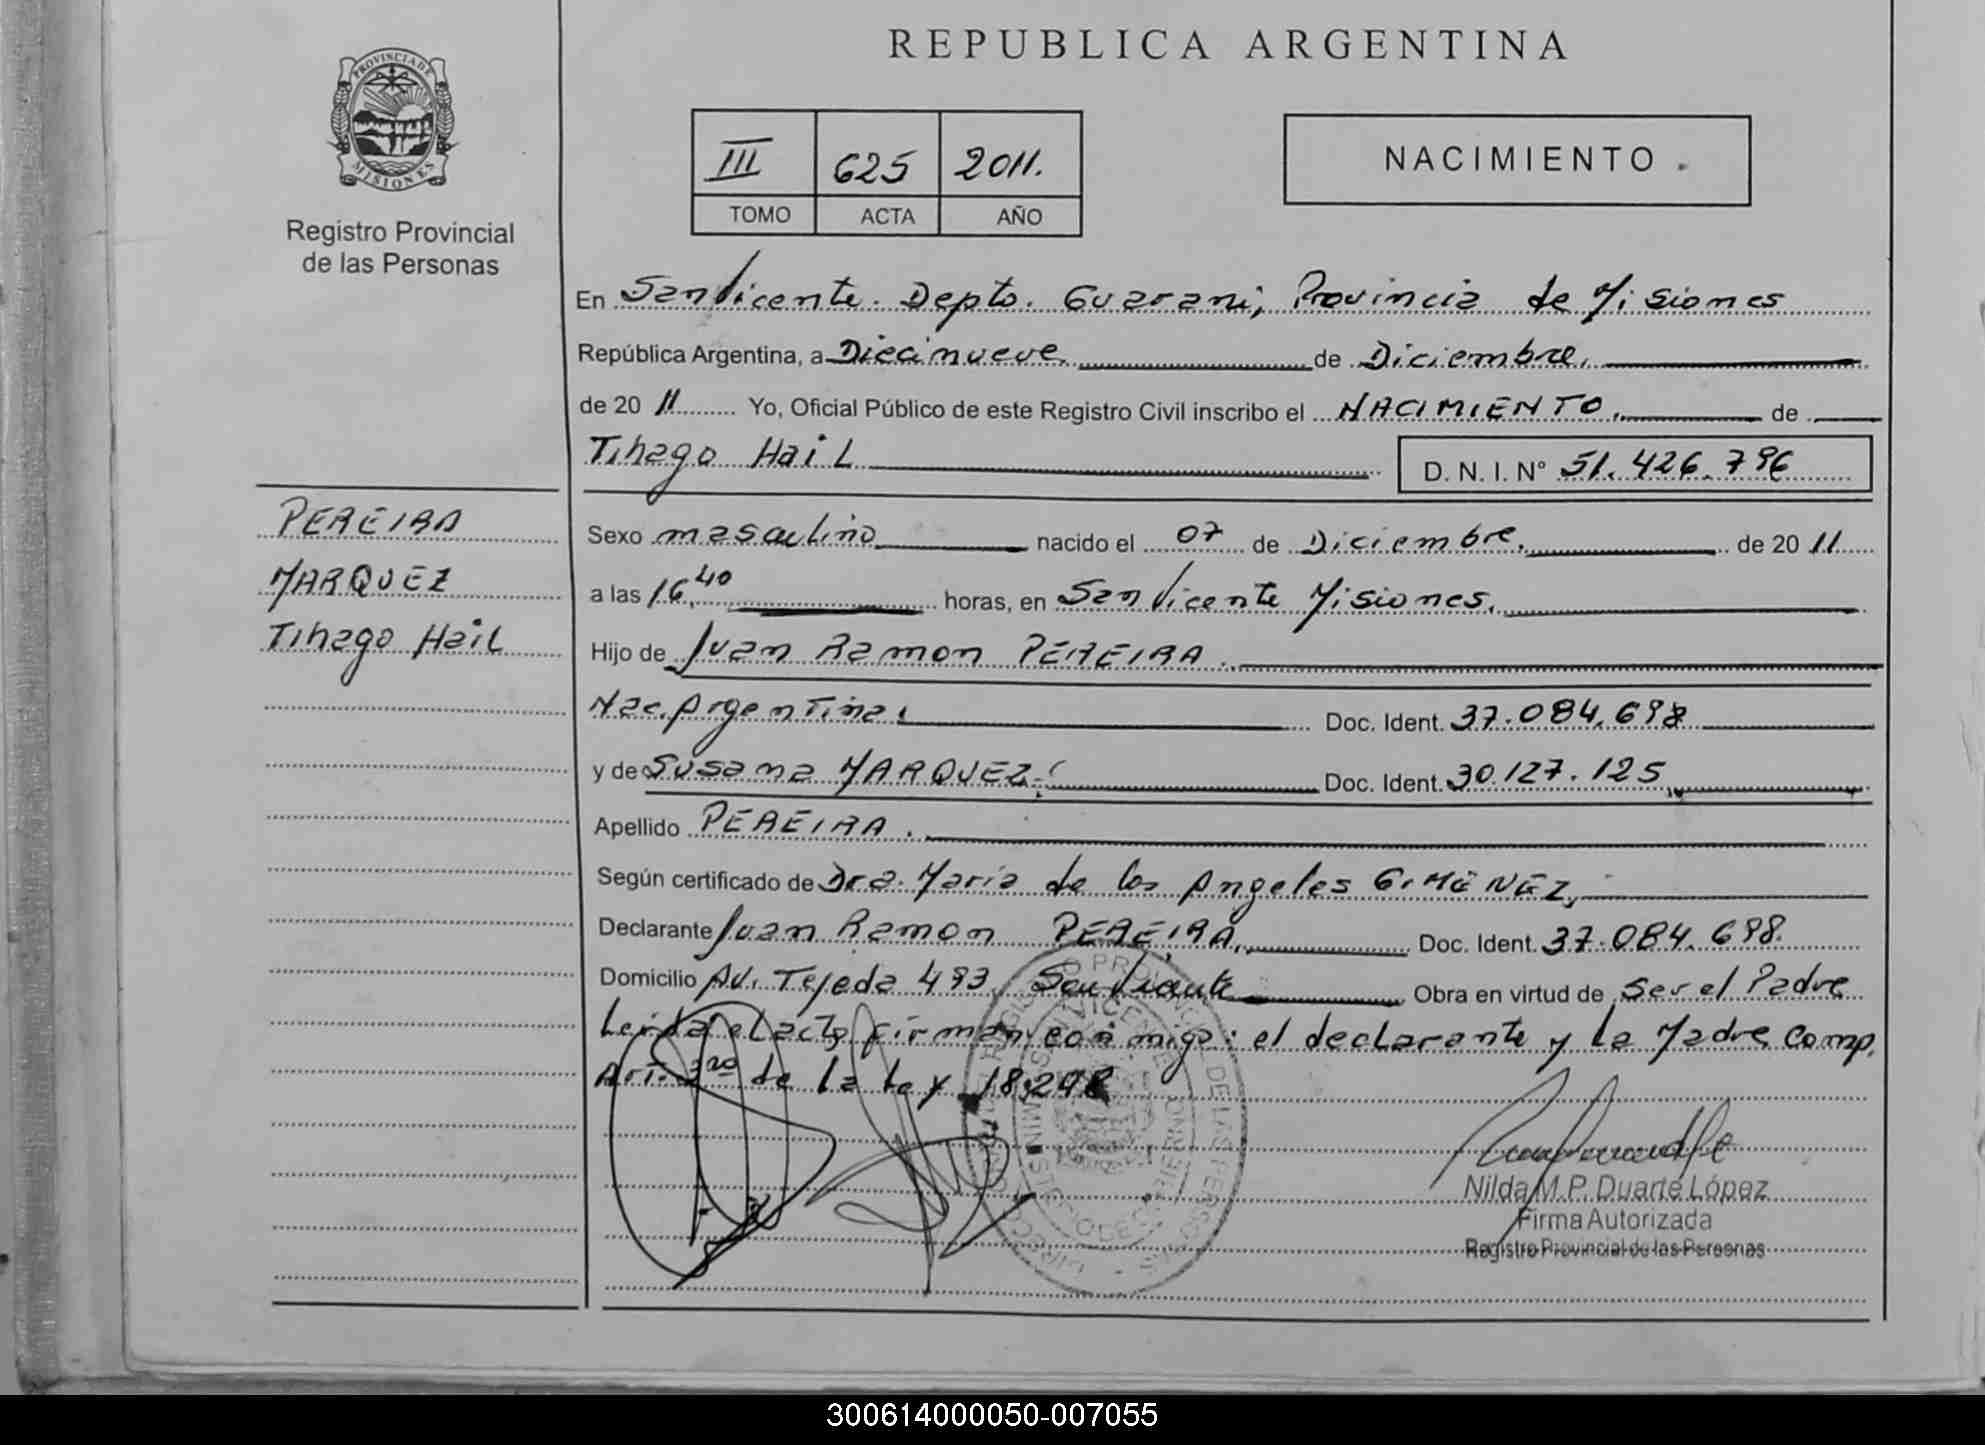 REPUBLICA ARGENTINA
PROVINCIA DE
MISIONES
Registro Provincial
de las Personas
III 625 2011.
TOMO ACTA AÑO
NACIMIENTO
En San Vicente. Depto. Guarani, Provincia de Misiones
República Argentina, a Diecinueve de Diciembre.
de 20 11 Yo, Oficial Público de este Registro Civil inscribo el NACIMIENTO. de
Tihago Hail D. N. I. N° 51.426.796
PEREIRA
MARQUEZ
Tihago Hail
Sexo masculino nacido el 07 de Diciembre. de 20 11
a las 16,40 horas, en San Vicente Misiones.
Hijo de Juan Ramon PEREIRA.
Nac. Argentina. Doc. Ident. 37.084.698
y de Susana MARQUEZ. Doc. Ident. 30.127.125
Apellido PEREIRA.
Según certificado de Dra. Maria de los Angeles GIMENEZ,
Declarante Juan Ramon PEREIRA. Doc. Ident. 37.084.698
Domicilio Av. Tejeda 493 San Vicente Obra en virtud de Ser el Padre
Leida el acta firman conmigo: el declarante y la Madre Comp.
Art. 2do de la Ley 18.248
Nilda M.P. Duarte López
Firma Autorizada
Registro Provincial de las Personas
300614000050-007055